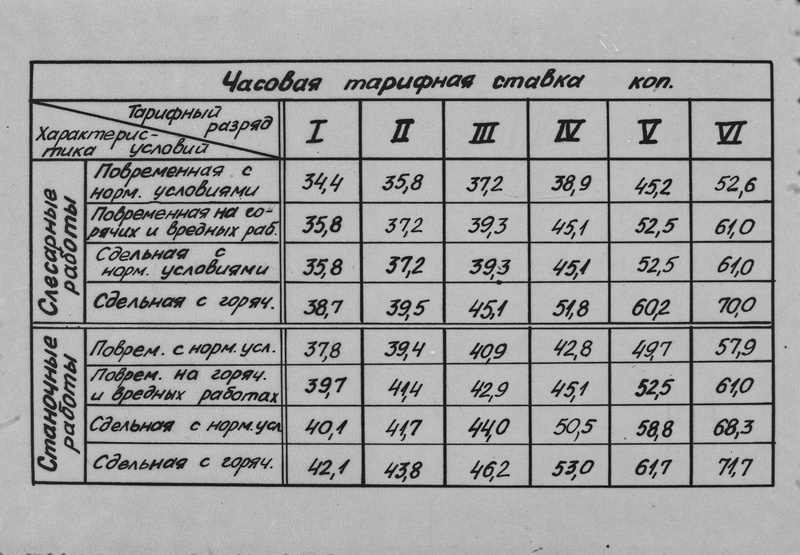 Часовая тарифная ставка коп.
Тарифный разряд
Характерис-
тика условий
I II III IV V VI
Слесарные работы
Повременная с
норм. условиями 34,4 35,8 37,2 38,9 45,2 52,6
Повременная на го-
рячих и вредных раб. 35,8 37,2 39,3 45,1 52,5 61,0
Сдельная с
норм. условиями 35,8 37,2 39,3 45,1 52,5 61,0
Сдельная с горяч. 38,7 39,5 45,1 51,8 60,2 70,0
Станочные работы
Поврем. с норм. усл. 37,8 39,4 40,9 42,8 49,7 57,9
Поврем. на горяч.
и вредных работах 39,7 41,4 42,9 45,1 52,5 61,0
Сдельная с норм. усл 40,1 41,7 44,0 50,5 58,8 68,3
Сдельная с горяч. 42,1 43,8 46,2 53,0 61,7 71,7